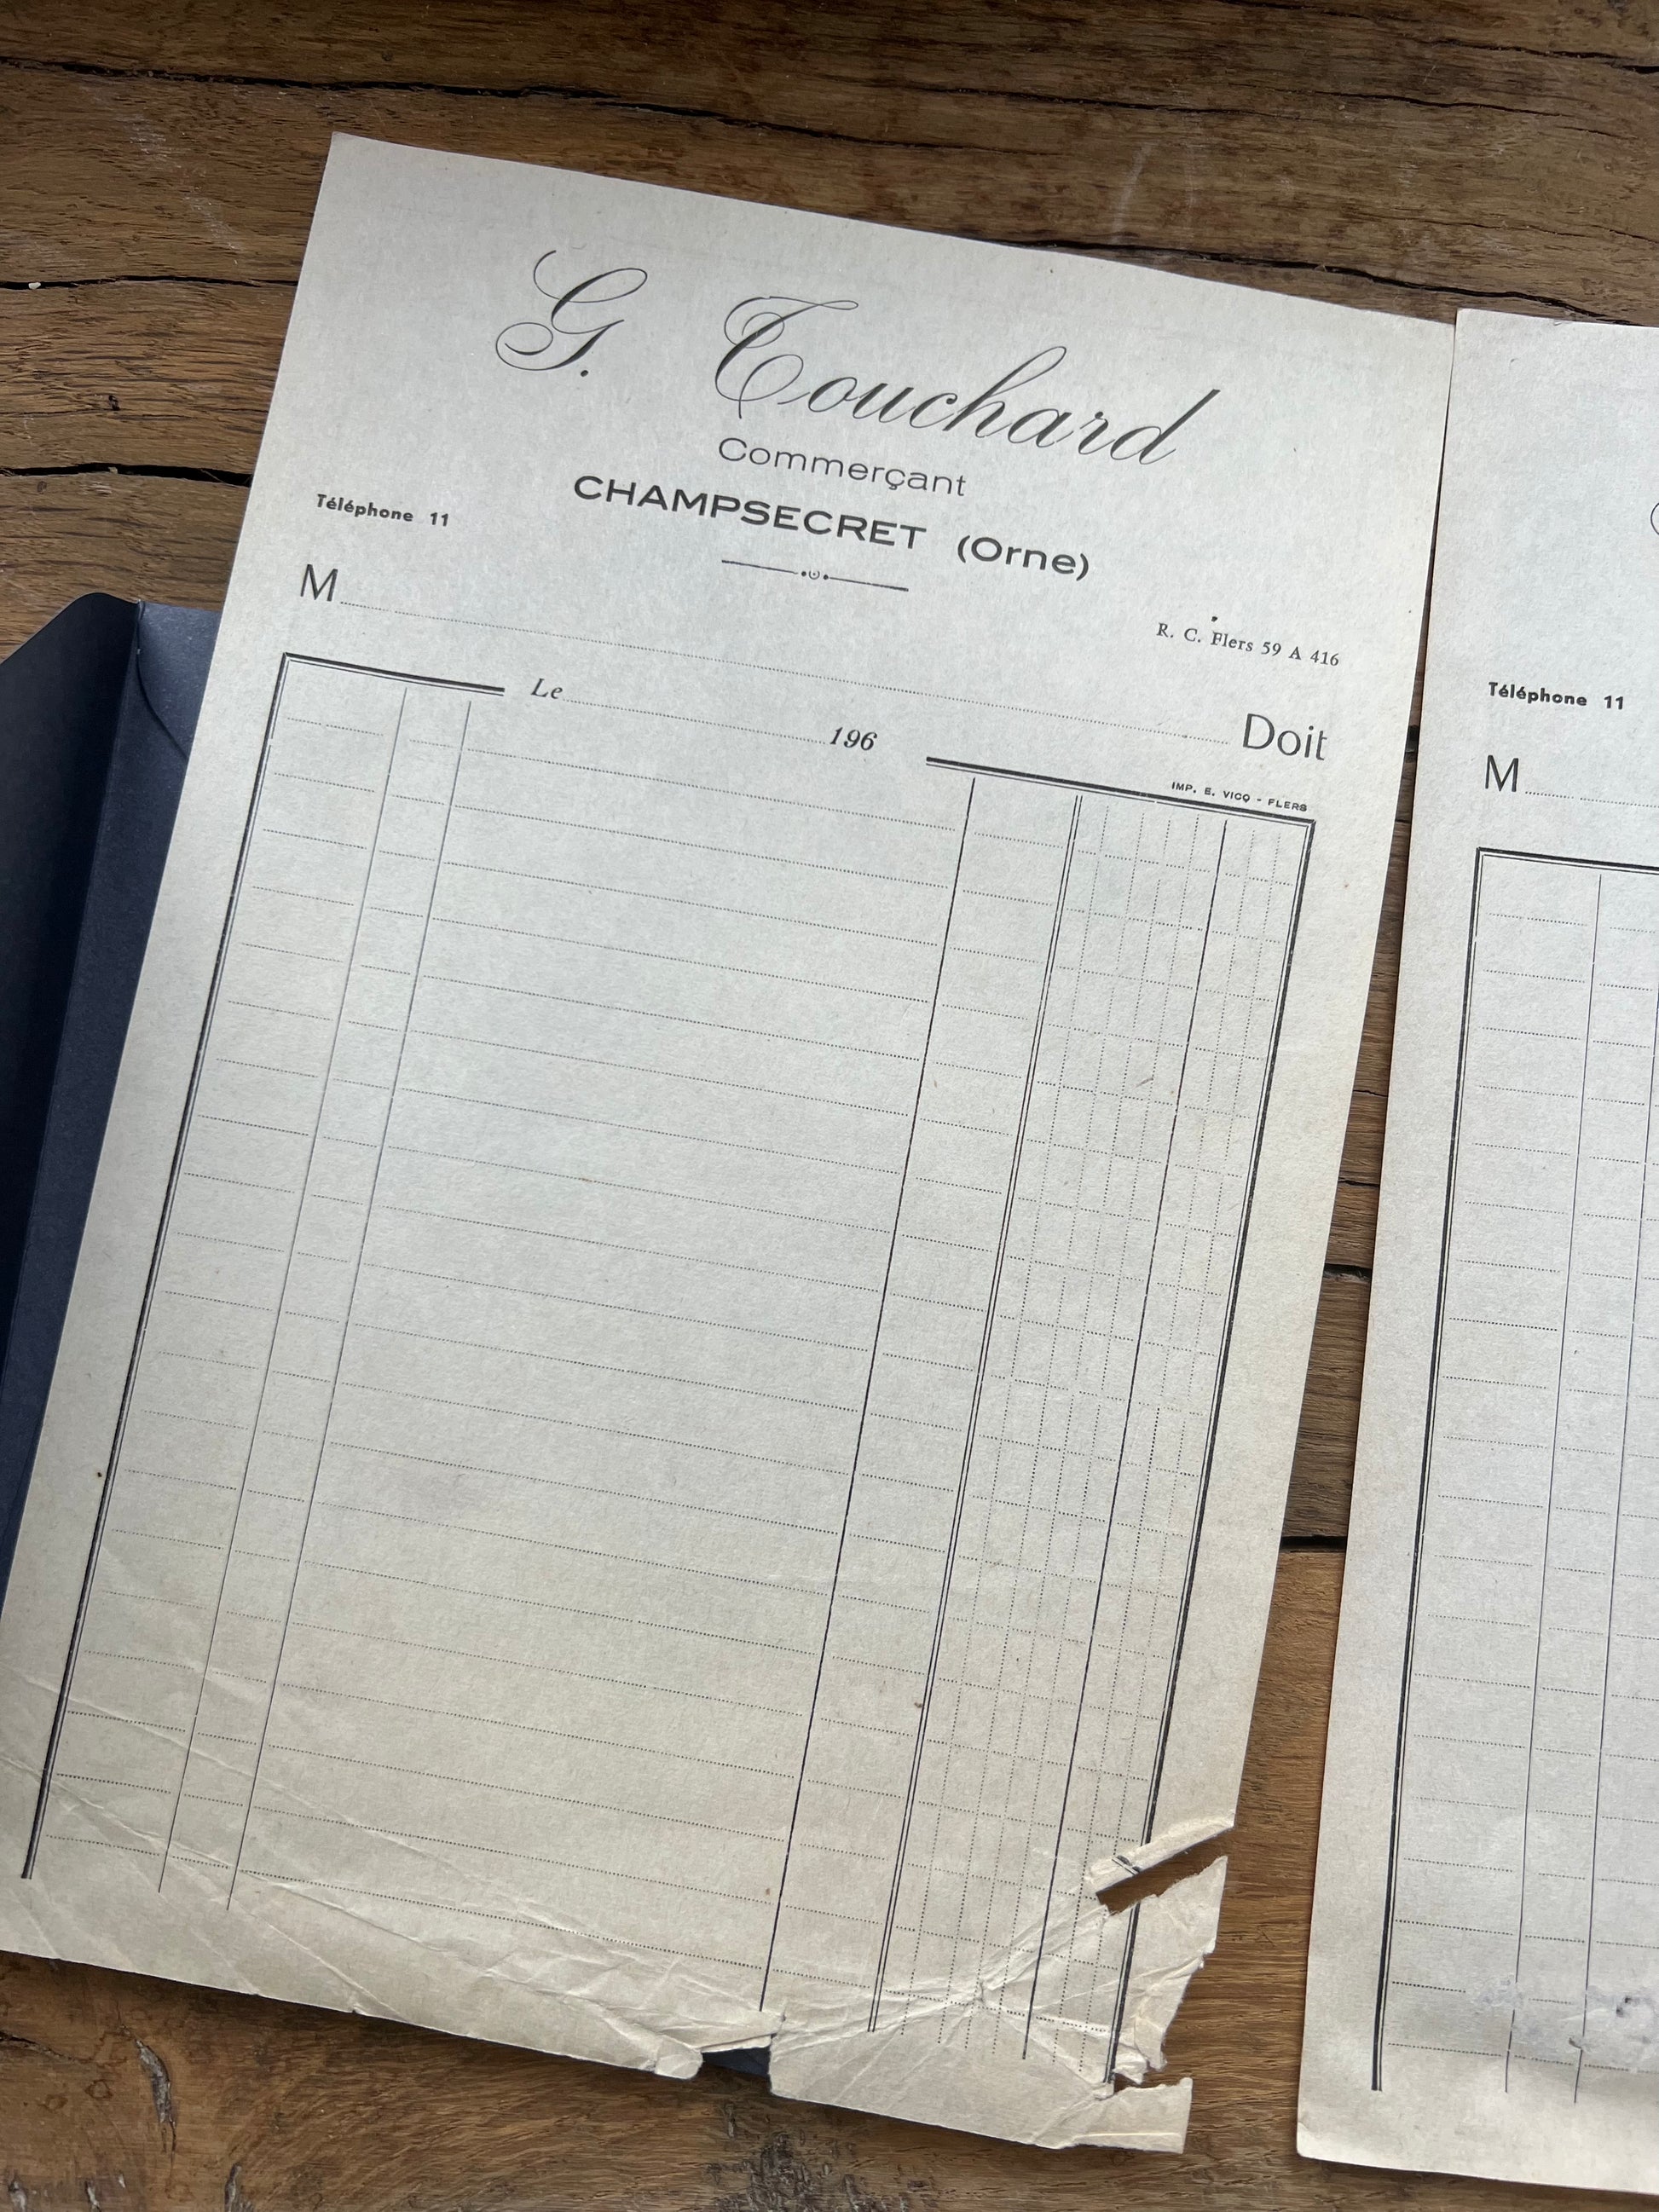 G. Touchard
Commerçant
CHAMPSECRET (Orne)
Téléphone 11
R. C. Flers 59 A 416
M
Doit
Le 196
IMP. E. VICQ - FLERS
Téléphone 11
M